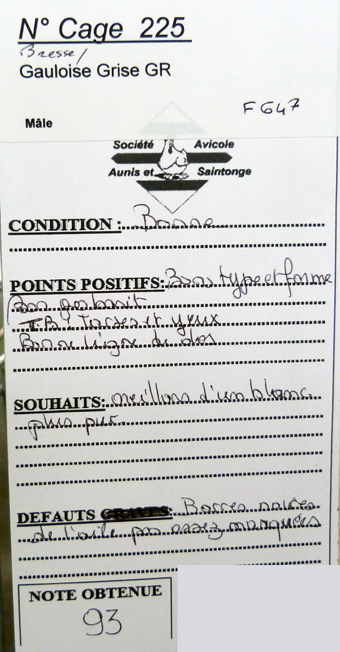 N° Cage 225
Bresse/
Gauloise Grise GR
F647
Mâle
Société Avicole
Aunis et Saintonge
CONDITION : Bonne
POINTS POSITIFS: Bons type et forme
Bon gabarit
TB Tarses et yeux
Bonne ligne de dos
SOUHAITS: oreillons d'un blanc
plus pur
DEFAUTS GRAVES: Barres noires
de l'aile pas assez marquées
NOTE OBTENUE
93